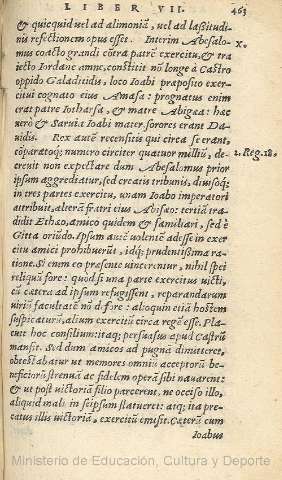 LIBER VII. 463
& quicquid uel ad alimoniā, uel ad lassitudi-
nis refectionem opus esset. Interim Abesalo-
mus coacto grandi cōtra patrē exercitu, & tra X.
iecto Iordane amne, constitit nō longe à Castro
oppido Galaditidis, loco Ioabi præposito exer-
citui cognato eius Amasa: prognatus enim
erat patre Iotharsa, & matre Abigæa: hæc
uerò & Saruia Ioabi mater, sorores erant Da-
uidis. Rex autē recensitis qui circa se erant,
cōparatoq; numero circiter quatuor milliū, de- 2. Reg. 18.
creuit non expectare dum Abesalomus prior
ipsum aggrediatur, sed creatis tribunis, diuisoq;
in tres partes exercitu, unam Ioabo imperatori
attribuit, alterā fratri eius Abisæo: tertiā tra-
didit Ethæo, amico quidem & familiari, sed è
Gitta oriūdo. Ipsum autē uolentē adesse in exer
citu amici prohibuerūt, idq; prudentissima ra-
tione. Si enim eo præsente uincerentur, nihil spei
reliquū fore: quòd si una parte exercitus uicti,
cū cætera ad ipsum refugissent, reparandarum
uiriū facultatē nō d.fore: alioquin etiā hostem
suspicaturū, alium exercitū circa regē esse. Pla-
cuit hoc consilium: itaq; persuasus apud castrū
mansit. Sed dum amicos ad pugnā dimitteret,
obtestabatur ut memores omniū acceptorū be-
neficiorū strenuā ac fidelem operā sibi nauarent:
& ut post uictoriā filio parcerent, ne occiso illo,
aliquid mali in seipsum statueret: atq; ita pre-
catus illis uictoriā, exercitū emisit. Cæterū cum
Ioabus
Ministerio de Educación, Cultura y Deporte